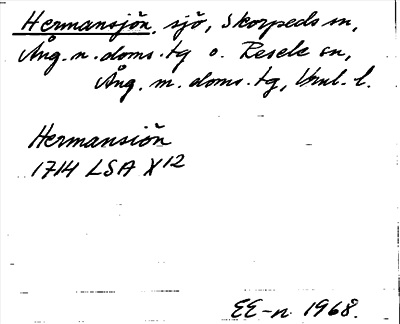 Hermansjön, sjö, Skorpeds sn,
Ång. n. doms. tg o. Resele sn,
Ång. m. doms. tg, Vnl. l.
Hermansiön
1714 LSA X12
EE-n 1968.